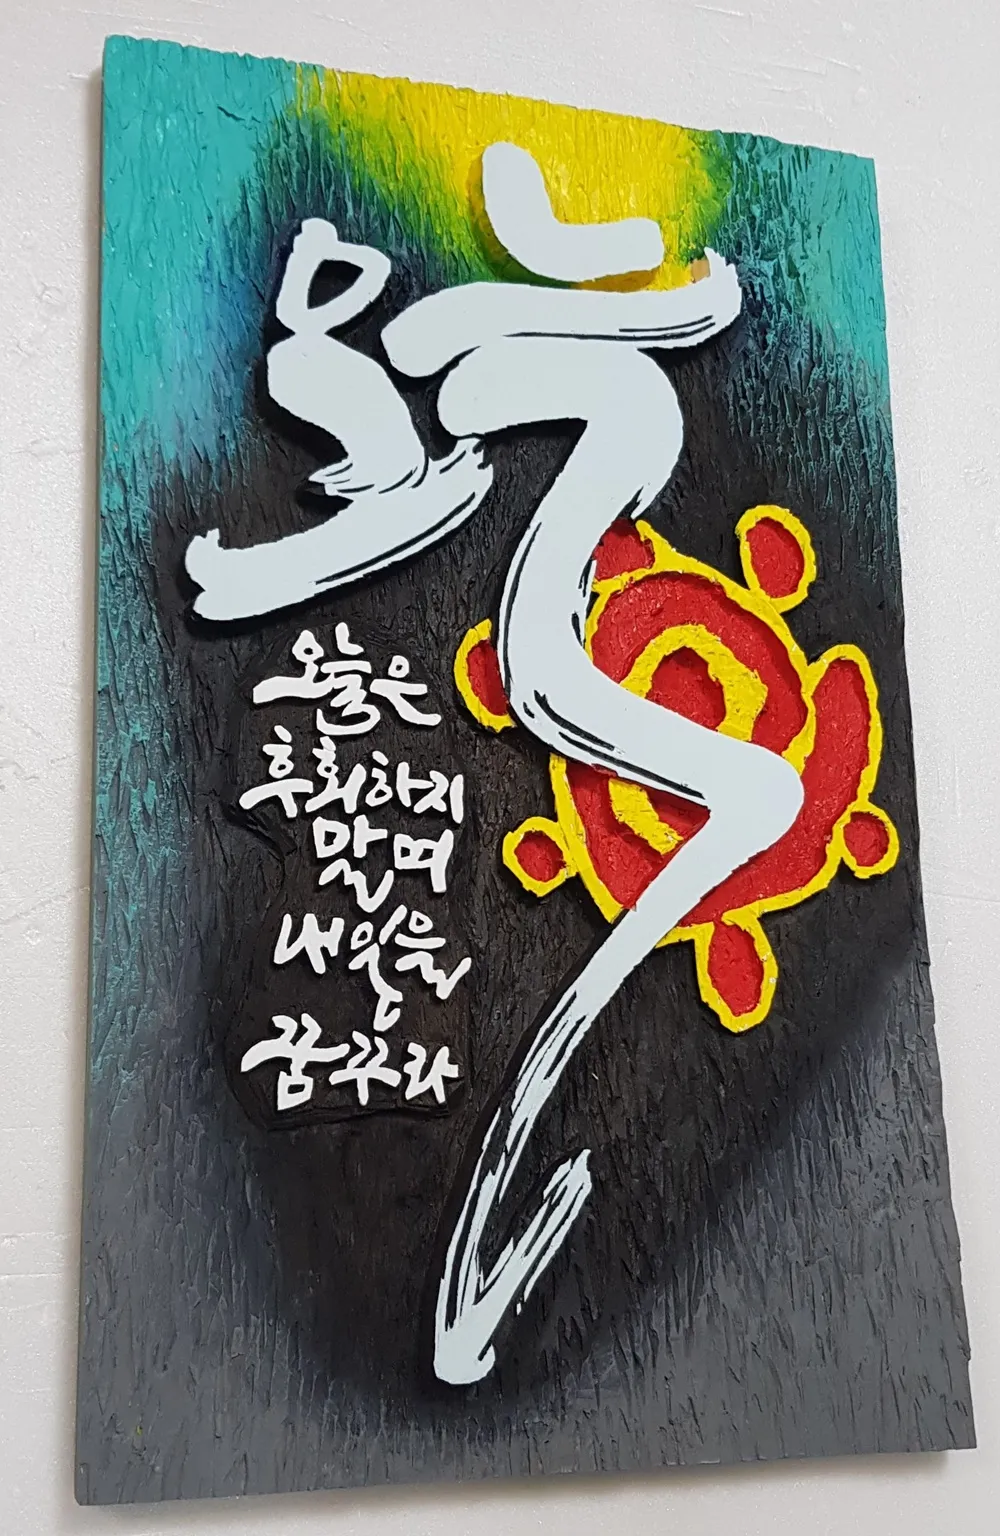 오늘
오늘은
후회하지
말며
내일을
꿈꾸라